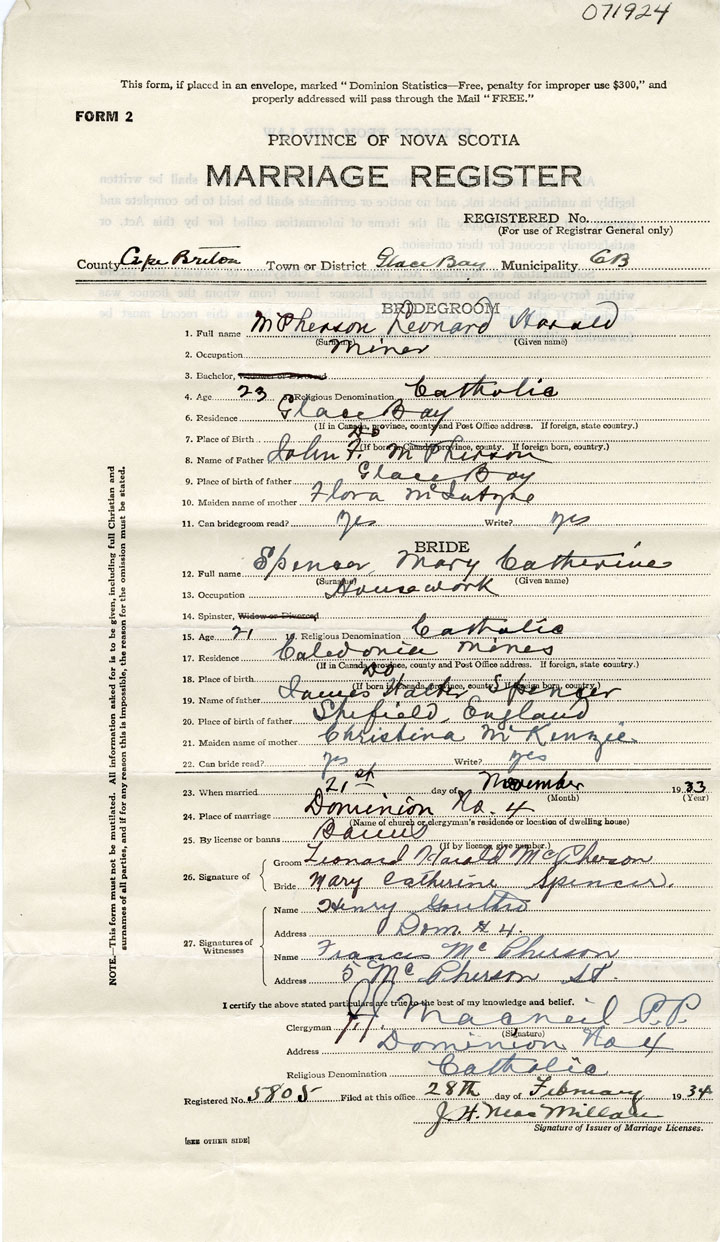 071924
This form, if placed in an envelope, marked "Dominion Statistics—Free, penalty for improper use $300," and
properly addressed will pass through the Mail "FREE."
FORM 2
PROVINCE OF NOVA SCOTIA
MARRIAGE REGISTER
REGISTERED No.
(For use of Registrar General only)
County Cape Breton Town or District Glace Bay Municipality CB
BRIDEGROOM
1. Full name McPherson Leonard Harald
(Surname) (Given name)
2. Occupation Miner
3. Bachelor, Widower or Divorced
4. Age 23 Religious Denomination Catholic
6. Residence Glace Bay
(If in Canada, province, county and Post Office address. If foreign, state country.)
7. Place of Birth Do
(If born in Canada, province, county. If foreign born, country.)
8. Name of Father John F. McPherson
9. Place of birth of father Glace Bay
10. Maiden name of mother Flora McIntyre
11. Can bridegroom read? Yes Write? yes
BRIDE
12. Full name Spencer, Mary Catherine
(Surname) (Given name)
13. Occupation Housework
14. Spinster, Widow or Divorced
15. Age 21 16. Religious Denomination Catholic
17. Residence Caledonia Mines
(If in Canada, province, county and Post Office address. If foreign, state country.)
18. Place of birth Do
(If born in Canada, province, county. If foreign born, country.)
19. Name of father James Spencer
20. Place of birth of father Shefield, England
21. Maiden name of mother Christina McKenzie
22. Can bride read? yes Write? yes
23. When married 21st day of November 1933
(Month) (Year)
24. Place of marriage Dominion No. 4
(Name of church or clergyman's residence or location of dwelling house)
25. By license or banns Banns
(If by license give number.)
26. Signature of
Groom Leonard Harald McPherson
Bride Mary Catherine Spencer.
27. Signatures of Witnesses
Name Henry Gouthro
Address Dom. #4.
Name Francis McPherson
Address 5 McPherson St.
I certify the above stated particulars are true to the best of my knowledge and belief.
Clergyman Macneil P.P.
(Signature)
Address Dominion No 4
Religious Denomination Catholic
Registered No. 5805 Filed at this office 28th day of February 1934
J. H. MacMillan
Signature of Issuer of Marriage Licenses.
[SEE OTHER SIDE]
NOTE.—This form must not be mutilated. All information asked for is to be given, including full Christian and
surnames of all parties, and if for any reason this is impossible, the reason for the omission must be stated.